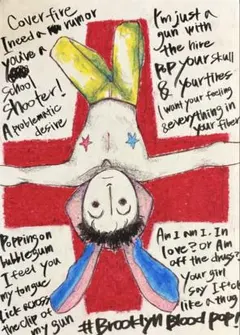 Cover fire
I need a rumor
you're a
school
shooter!
A problematic
desire
I'm just a
gun with
the hire
POP your skull
& your tires
I want your feeling
& everything in
your fiber
Popping on
bubblegum
I feel you
my tongue
Lick across
the clip of
my gun
Am I am I. In
love? or Am
off the drugs?
your girl
say I
like a thug
#Brooklyn Blood pop!